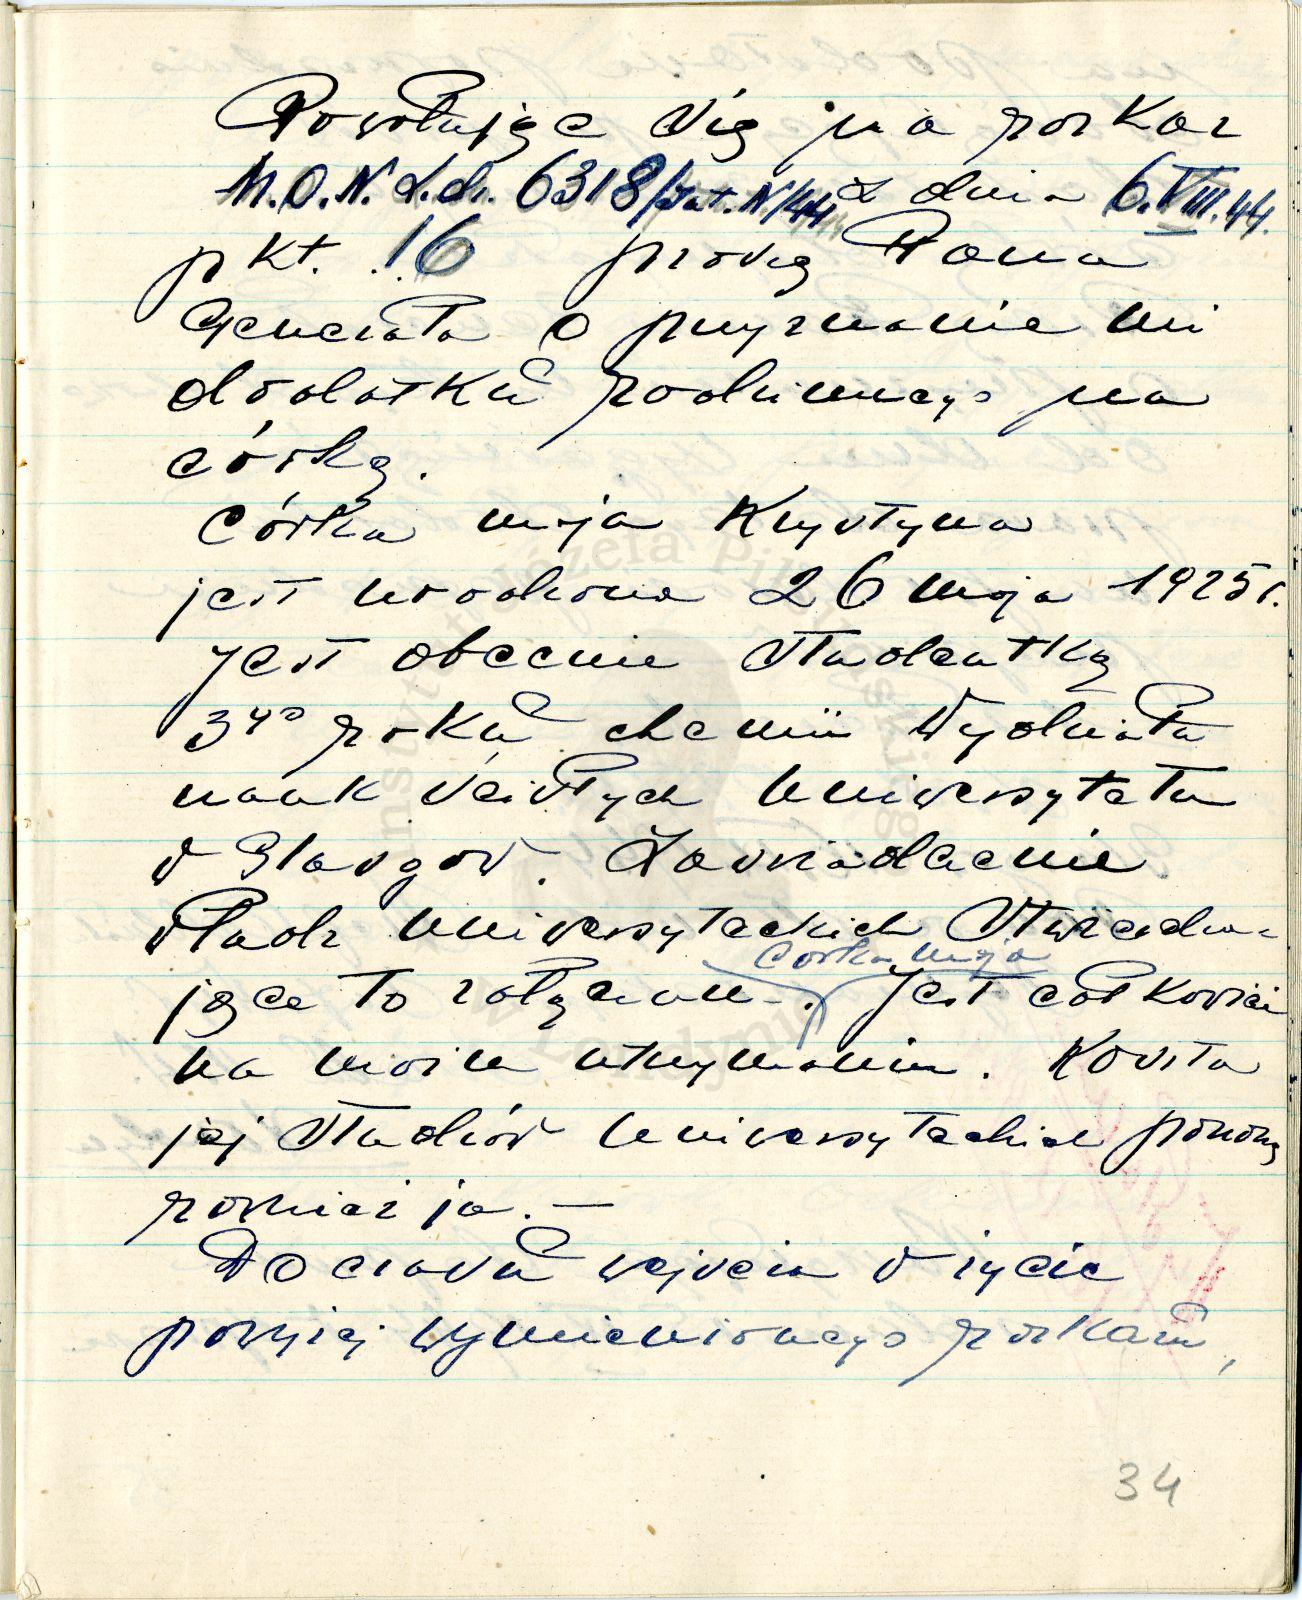 Powołując się na rozkaz
M.O.N. L.dz. 6318/Tjt.N/44 z dnia 6.VIII.44.
pkt. 16 proszę Pana
Generała o przyznanie mi
dodatku rodzinnego na
córkę.
Córka moja Krystyna
jest urodzona 26 maja 1925 r.
Jest obecnie studentką
3go roku chemii Wydziału
nauk ścisłych Uniwersytetu
w Glasgow. Zaświadczenie
władz uniwersyteckich stwierdza-
jące to załączam. Córka moja Jest całkowicie
na moim utrzymaniu. Koszta
jej studiów uniwersyteckich ponoszę
również ja. —
Do czasu wejścia w życie
powyżej wymienionego rozkazu,
34
Instytut Józefa Piłsudskiego
w Londynie